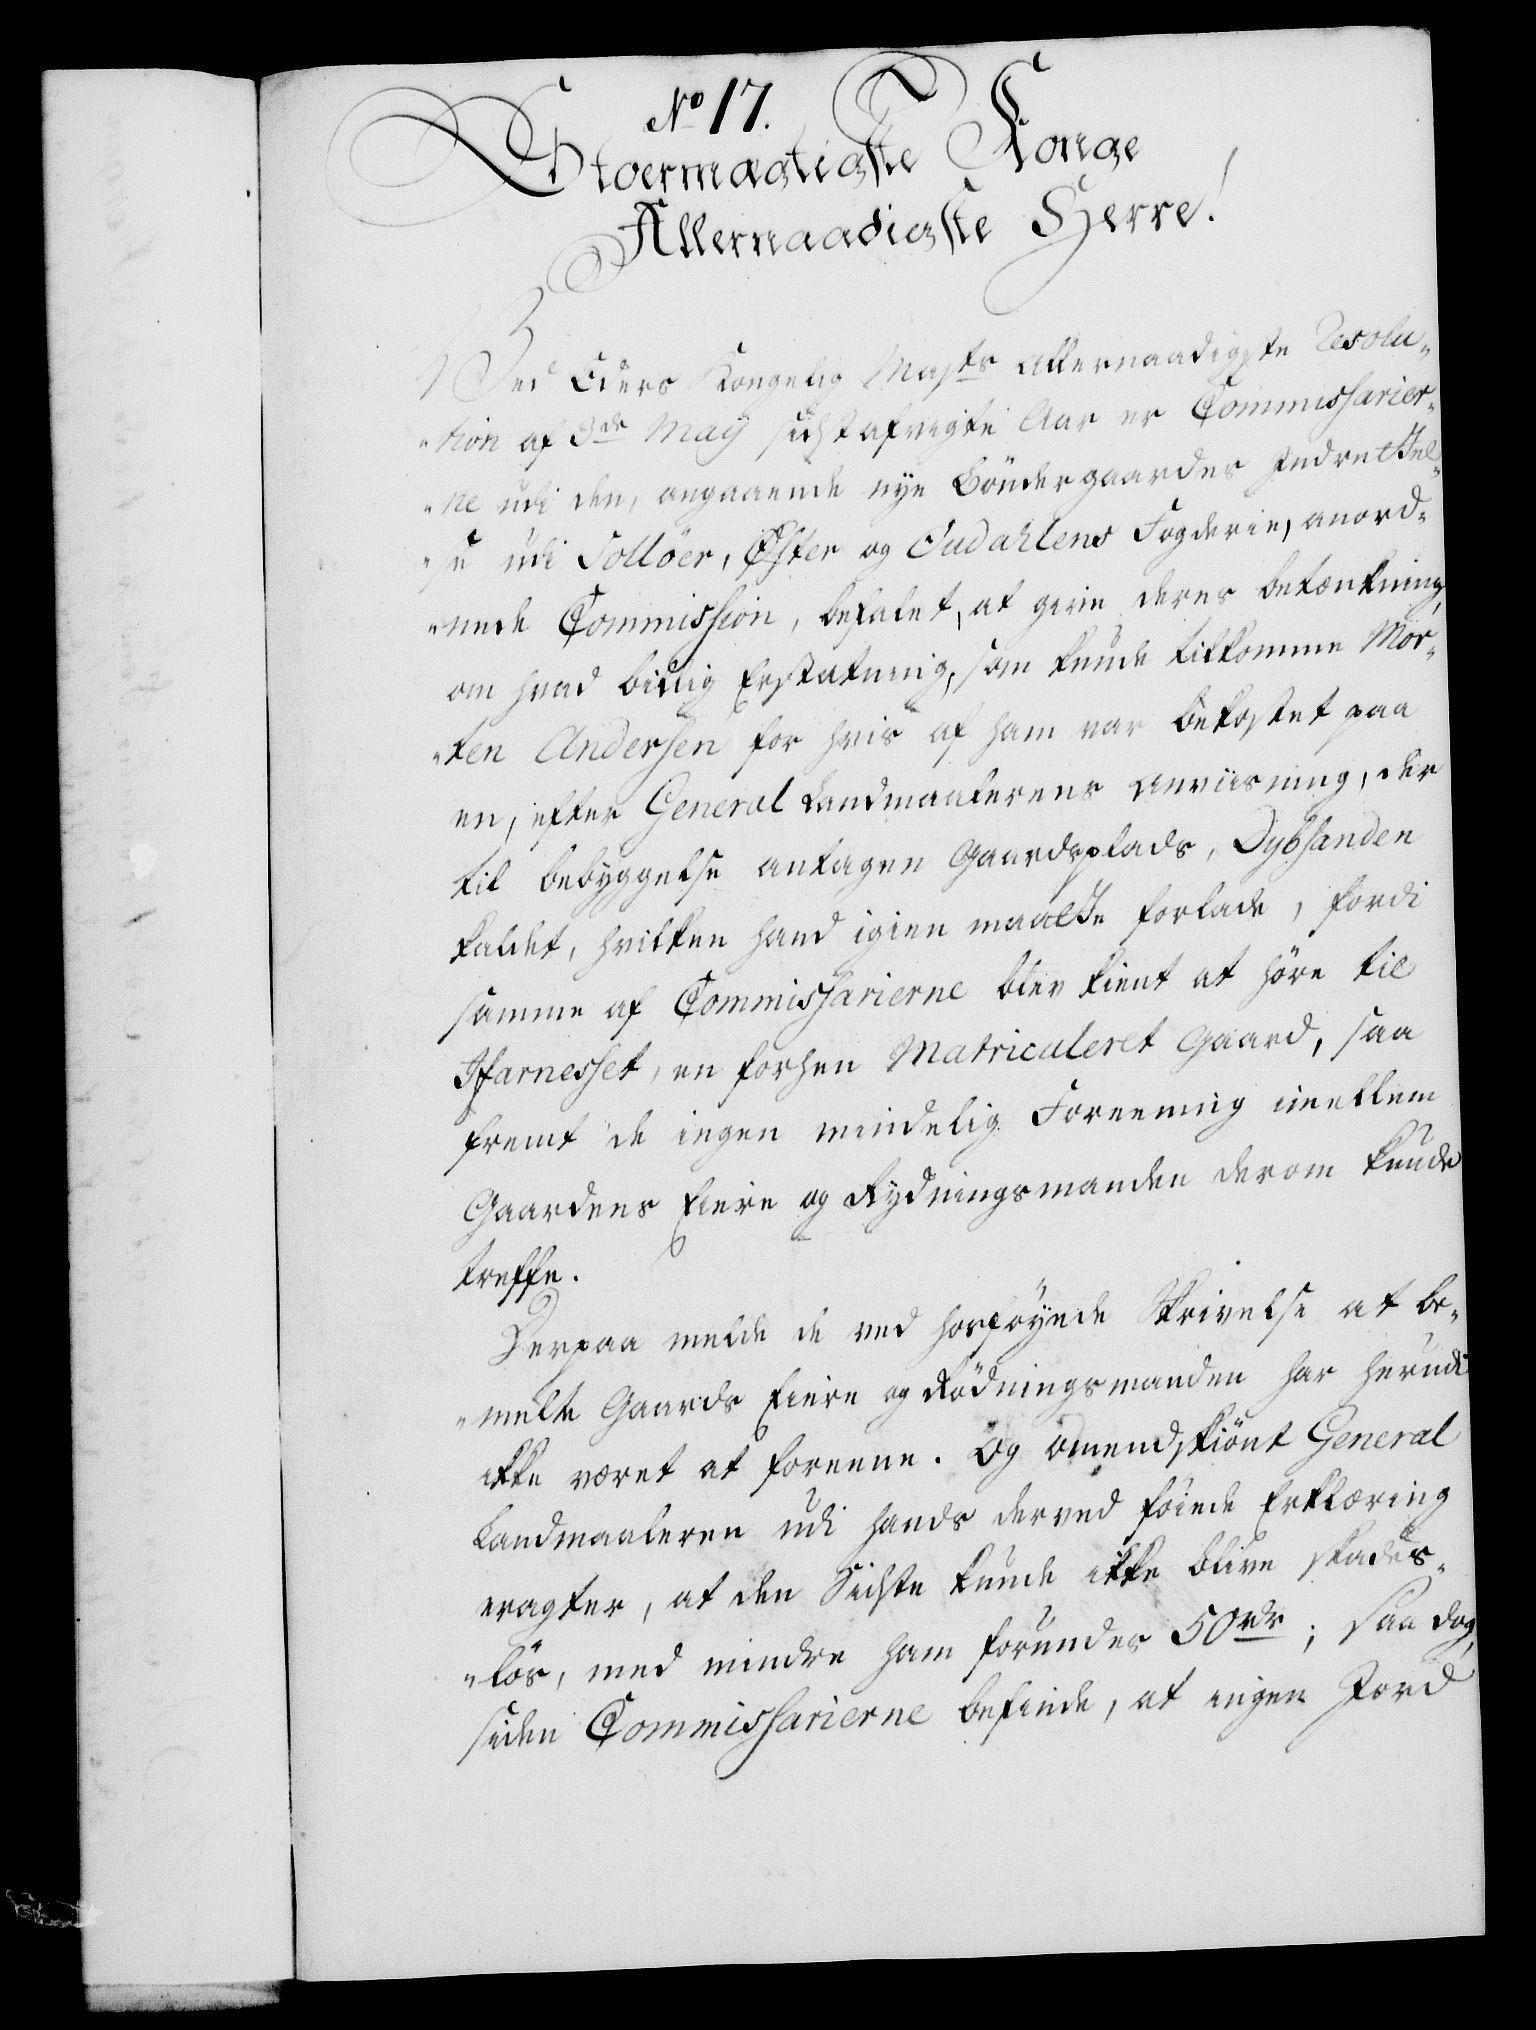 No 17.
Stoermægtigste Konge
Allernaadigste Herre!
Ved Eders Kongelig Majts Allernaadigste Resolu-
-tion af 3de Maÿ sidst afvigte Aar er Commissarier-
-ne udi den, angaaende nye Böndergaardes Indrettel-
-se udi Sollöer, Öster og Oudahlens Fogderie, anord-
-nede Commission, befalet, at give deres betænkning,
om hvad billig Erstatning, som kunde tilkomme Mor-
-ten Andersen for hvis af ham var bekostet paa
en, efter General Landmaalerens Anviisning, der
til bebyggelse antagen Gaardsplads, Dybsanden
kaldet, hvilken hand igien maatte forlade, fordi
samme af Commissarierne blev kient at höre til
Ifarnesset, en forhen Matriculeret Gaard, saa
fremt de ingen mindelig Foreening imellem
Gaardens Eiere og Rydningsmanden derom kunde
treffe.
Derpaa melde de ved hosföyede Skrivelse at be-
-melte Gaards Eiere og Rödningsmanden har herudi
ikke været at foreene. Og omendskiönt General
Landmaaleren udi hands derved föiede Erklæring
eragter, at den Sidste kunde ikke blive skades-
-lös, med mindre ham forundes 50 rdr; saa dog,
siden Commissarierne befinde, at ingen Jord